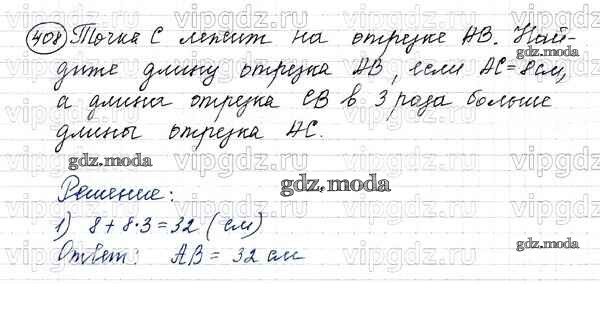 408 Точка С лежит на отрезке АВ. Най-
дите длину отрезка АВ, если АС=8см,
а длина отрезка СВ в 3 раза больше
длины отрезка АС.
gdz.moda
gdz.moda
Решение:
gdz.moda
1) 8+8·3=32 (см)
Ответ: АВ = 32 см
vipgdz.com